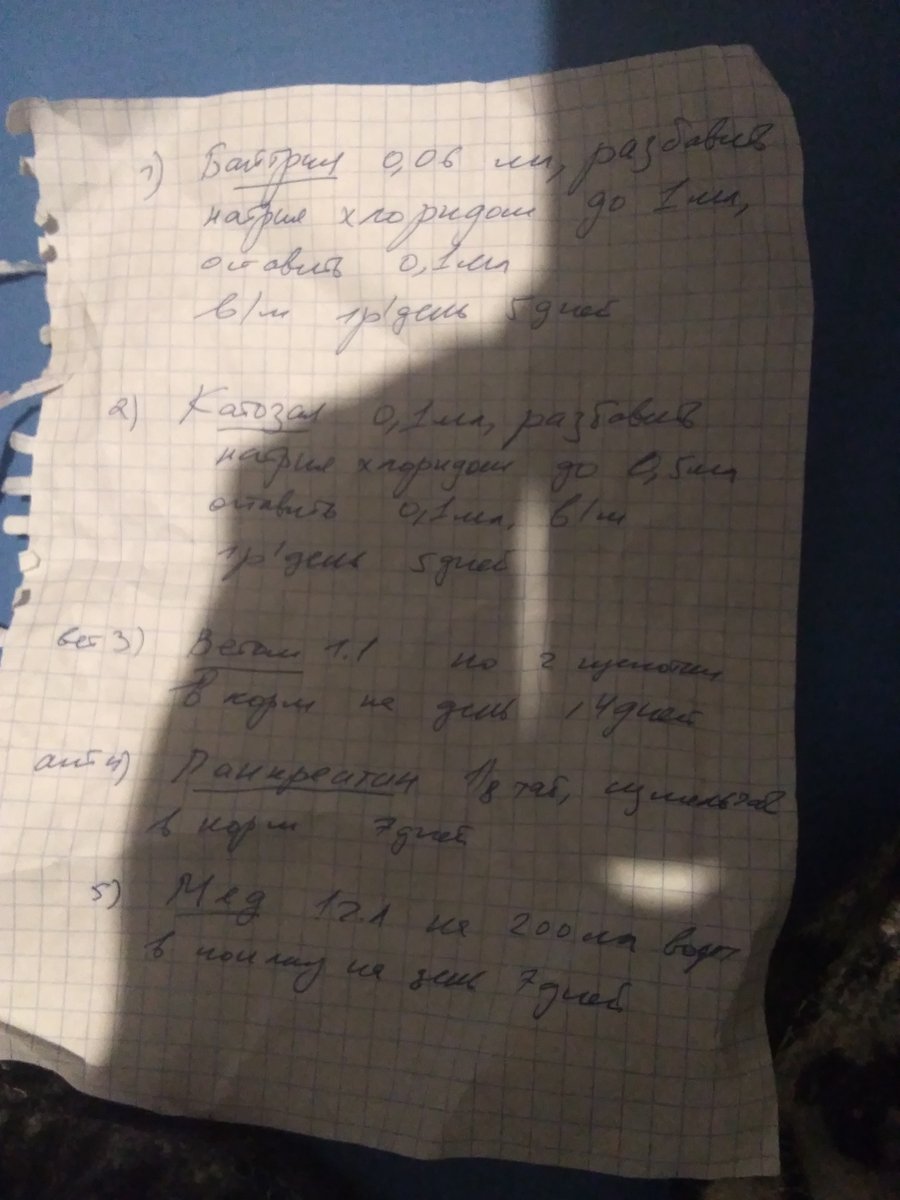 1) Байтрил 0,06 мл, разбавить
натрия хлоридом до 1 мл,
оставить 0,1 мл
в/м 1р/день 5 дней
2) Катозал 0,1 мл, разбавить
натрия хлоридом до 0,5 мл
оставить 0,1 мл, в/м
1р/день 5 дней
вет 3) Ветом 1.1 по 2 щепотки
в корм на день 14 дней
апт 4) Панкреатин 1/8 таб, измельчав
в корм 7 дней
5) Мед 1 ч.л на 200 мл воды
в поилку на день 7 дней